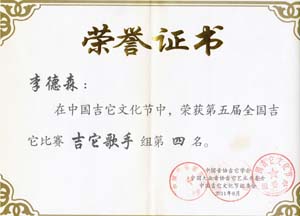 荣誉证书
李德森：
在中国吉它文化节中，荣获第五届全国吉
它比赛 吉它歌手 组第 四 名。
中国音协吉它学会
中国吉它文化节组委会
2011年8月